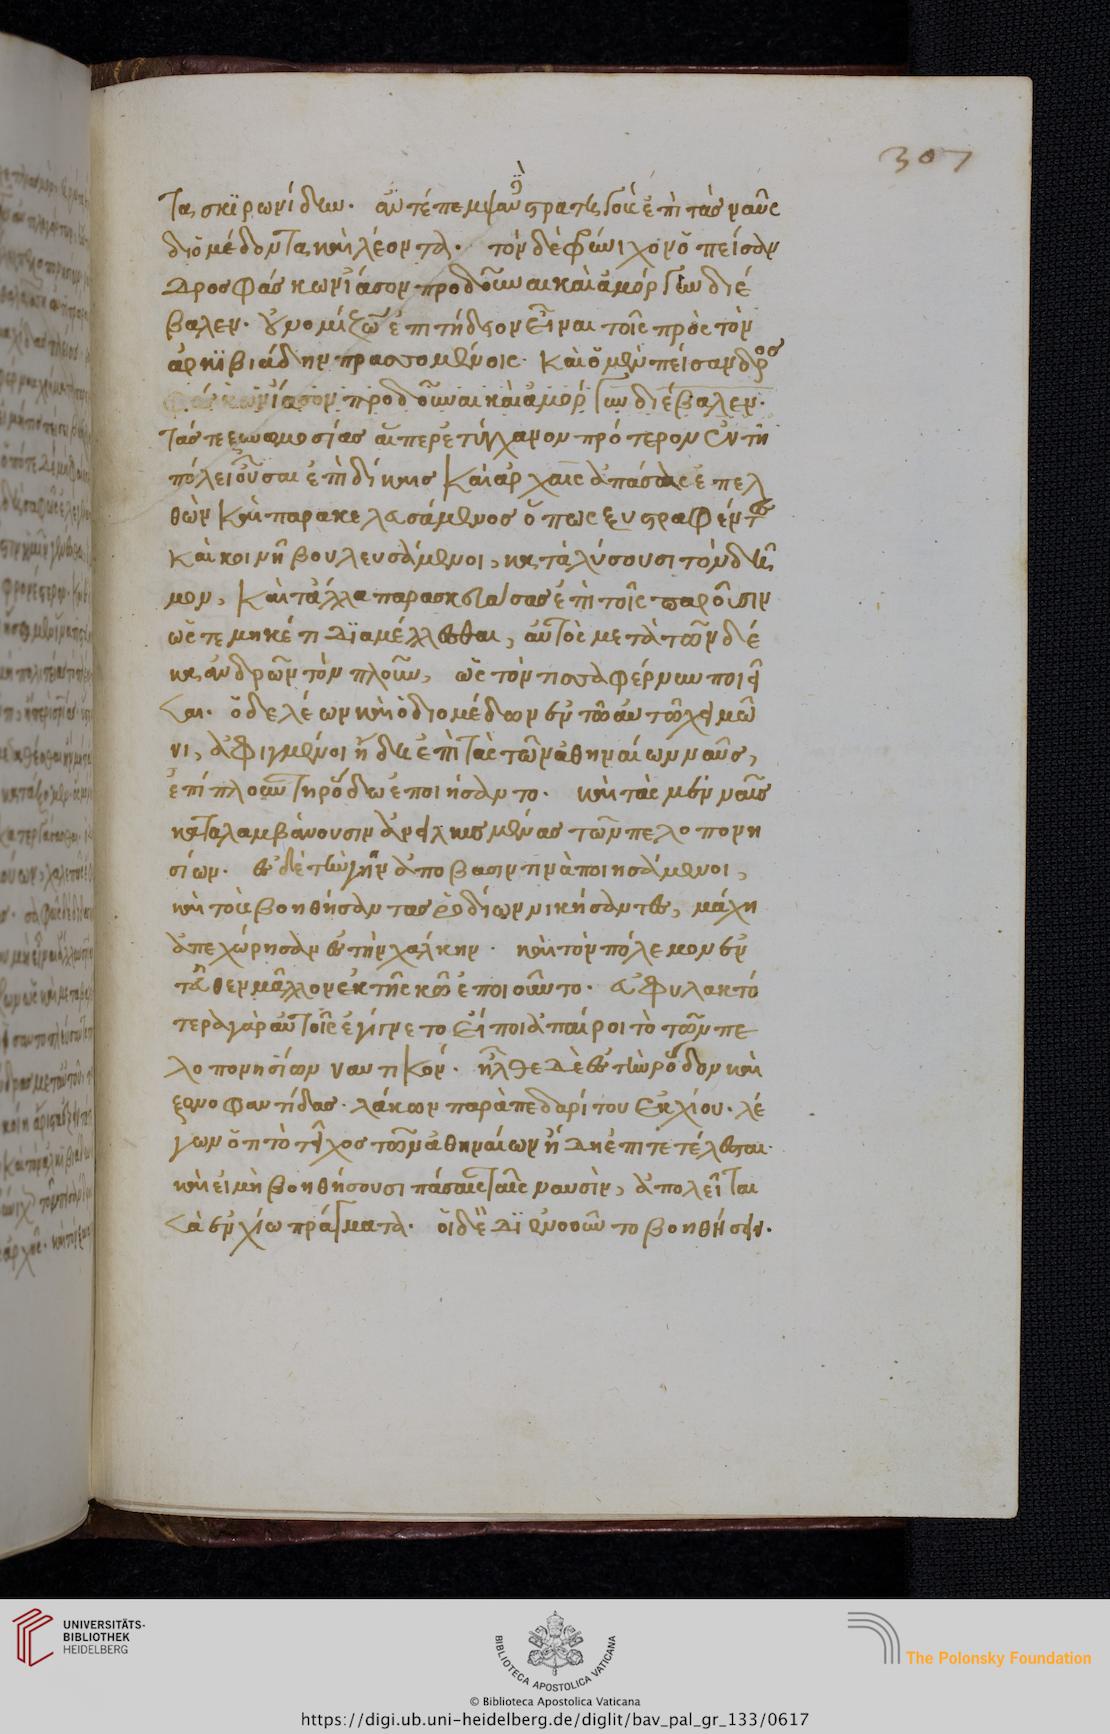 307
τα σκιρωνίδην. ἀντέπεμψαν δὲ στρατηγοὺς ἐπὶ τὰς ναῦς
διομέδοντα καὶ λέοντα. τὸν δὲ φρύνιχον ὁ πείσαν
δρος φάσκων ἴασον προδοῦναι καὶ ἀμόργην διέ
βαλεν. οὐ νομίζων ἐπιτήδειον εἶναι τοῖς πρὸς τὸν
ἀλκιβιάδην πρασσομένοις. καὶ ὁ μὲν πείσανδρος
φάσκων ἴασον προδοῦναι καὶ ἀμόργην διέβαλεν.
τάς τε ξυνωμοσίας αἵπερ ἐτύγχανον πρότερον ἐν τῆ
πόλει οὖσαι ἐπὶ δίκαις καὶ ἀρχαῖς ἁπάσας ἐπελ
θὼν καὶ παρακελευσάμενος ὅπως ξυστραφέντες
καὶ κοινῆ βουλευσάμενοι, καταλύσουσι τὸν δῆ
μον, καὶ τἄλλα παρασκευάσας ἐπὶ τοῖς παροῦσιν
ὥστε μηκέτι διαμέλλεσθαι, αὐτὸς μετὰ τῶν δέ
κα ἀνδρῶν τὸν πλοῦν, ὡς τὸν τισσαφέρνην ποιεῖ
ται. ὁ δε λέων καὶ ὁ διομέδων ἐν τῶ αὐτῶ χειμῶ
νι, ἀφιγμένοι ἤδη ἐπὶ τὰς τῶν ἀθηναίων ναῦς,
ἐπίπλουν τῆ ῥόδω ἐποιήσαντο. καὶ τὰς μὲν ναῦς
καταλαμβάνουσιν ἀνειλκυσμένας τῶν πελοπονη
σίων. ἐς δὲ τὴν γῆν ἀπόβασιν τινὰ ποιησάμενοι,
καὶ τοὺς βοηθήσαντας ῥοδίων νικήσαντες, μάχη
ἀπεχώρησαν ἐς τὴν χάλκην. καὶ τὸν πόλεμον ἐν
τεῦθεν μᾶλλον ἐκ τῆς κῶ ἐποιοῦντο. εὐφυλακτό
τερα γὰρ αὐτοῖς ἐγίγνετο εἴ ποι ἀπαίροι τὸ τῶν πε
λοπονησίων ναυτικόν. ἦλθε δὲ ἐς τὴν ῥόδον καὶ
ξενοφαντίδας. λάκων παρὰ πεδαρίτου ἐκ χίου. λέ
γων ὅτι τὸ τεῖχος τῶν ἀθηναίων ἤδη ἐπιτετέλεσται.
καὶ εἰ μὴ βοηθήσουσι πάσαις ταῖς ναυσὶν, ἀπολεῖται
τὰ ἐν χίω πράγματα. οἱ δὲ διενοοῦντο βοηθήσειν.
UNIVERSITÄTS-
BIBLIOTHEK
HEIDELBERG
BIBLIOTECA APOSTOLICA VATICANA
The Polonsky Foundation
© Biblioteca Apostolica Vaticana
https://digi.ub.uni-heidelberg.de/diglit/bav_pal_gr_133/0617